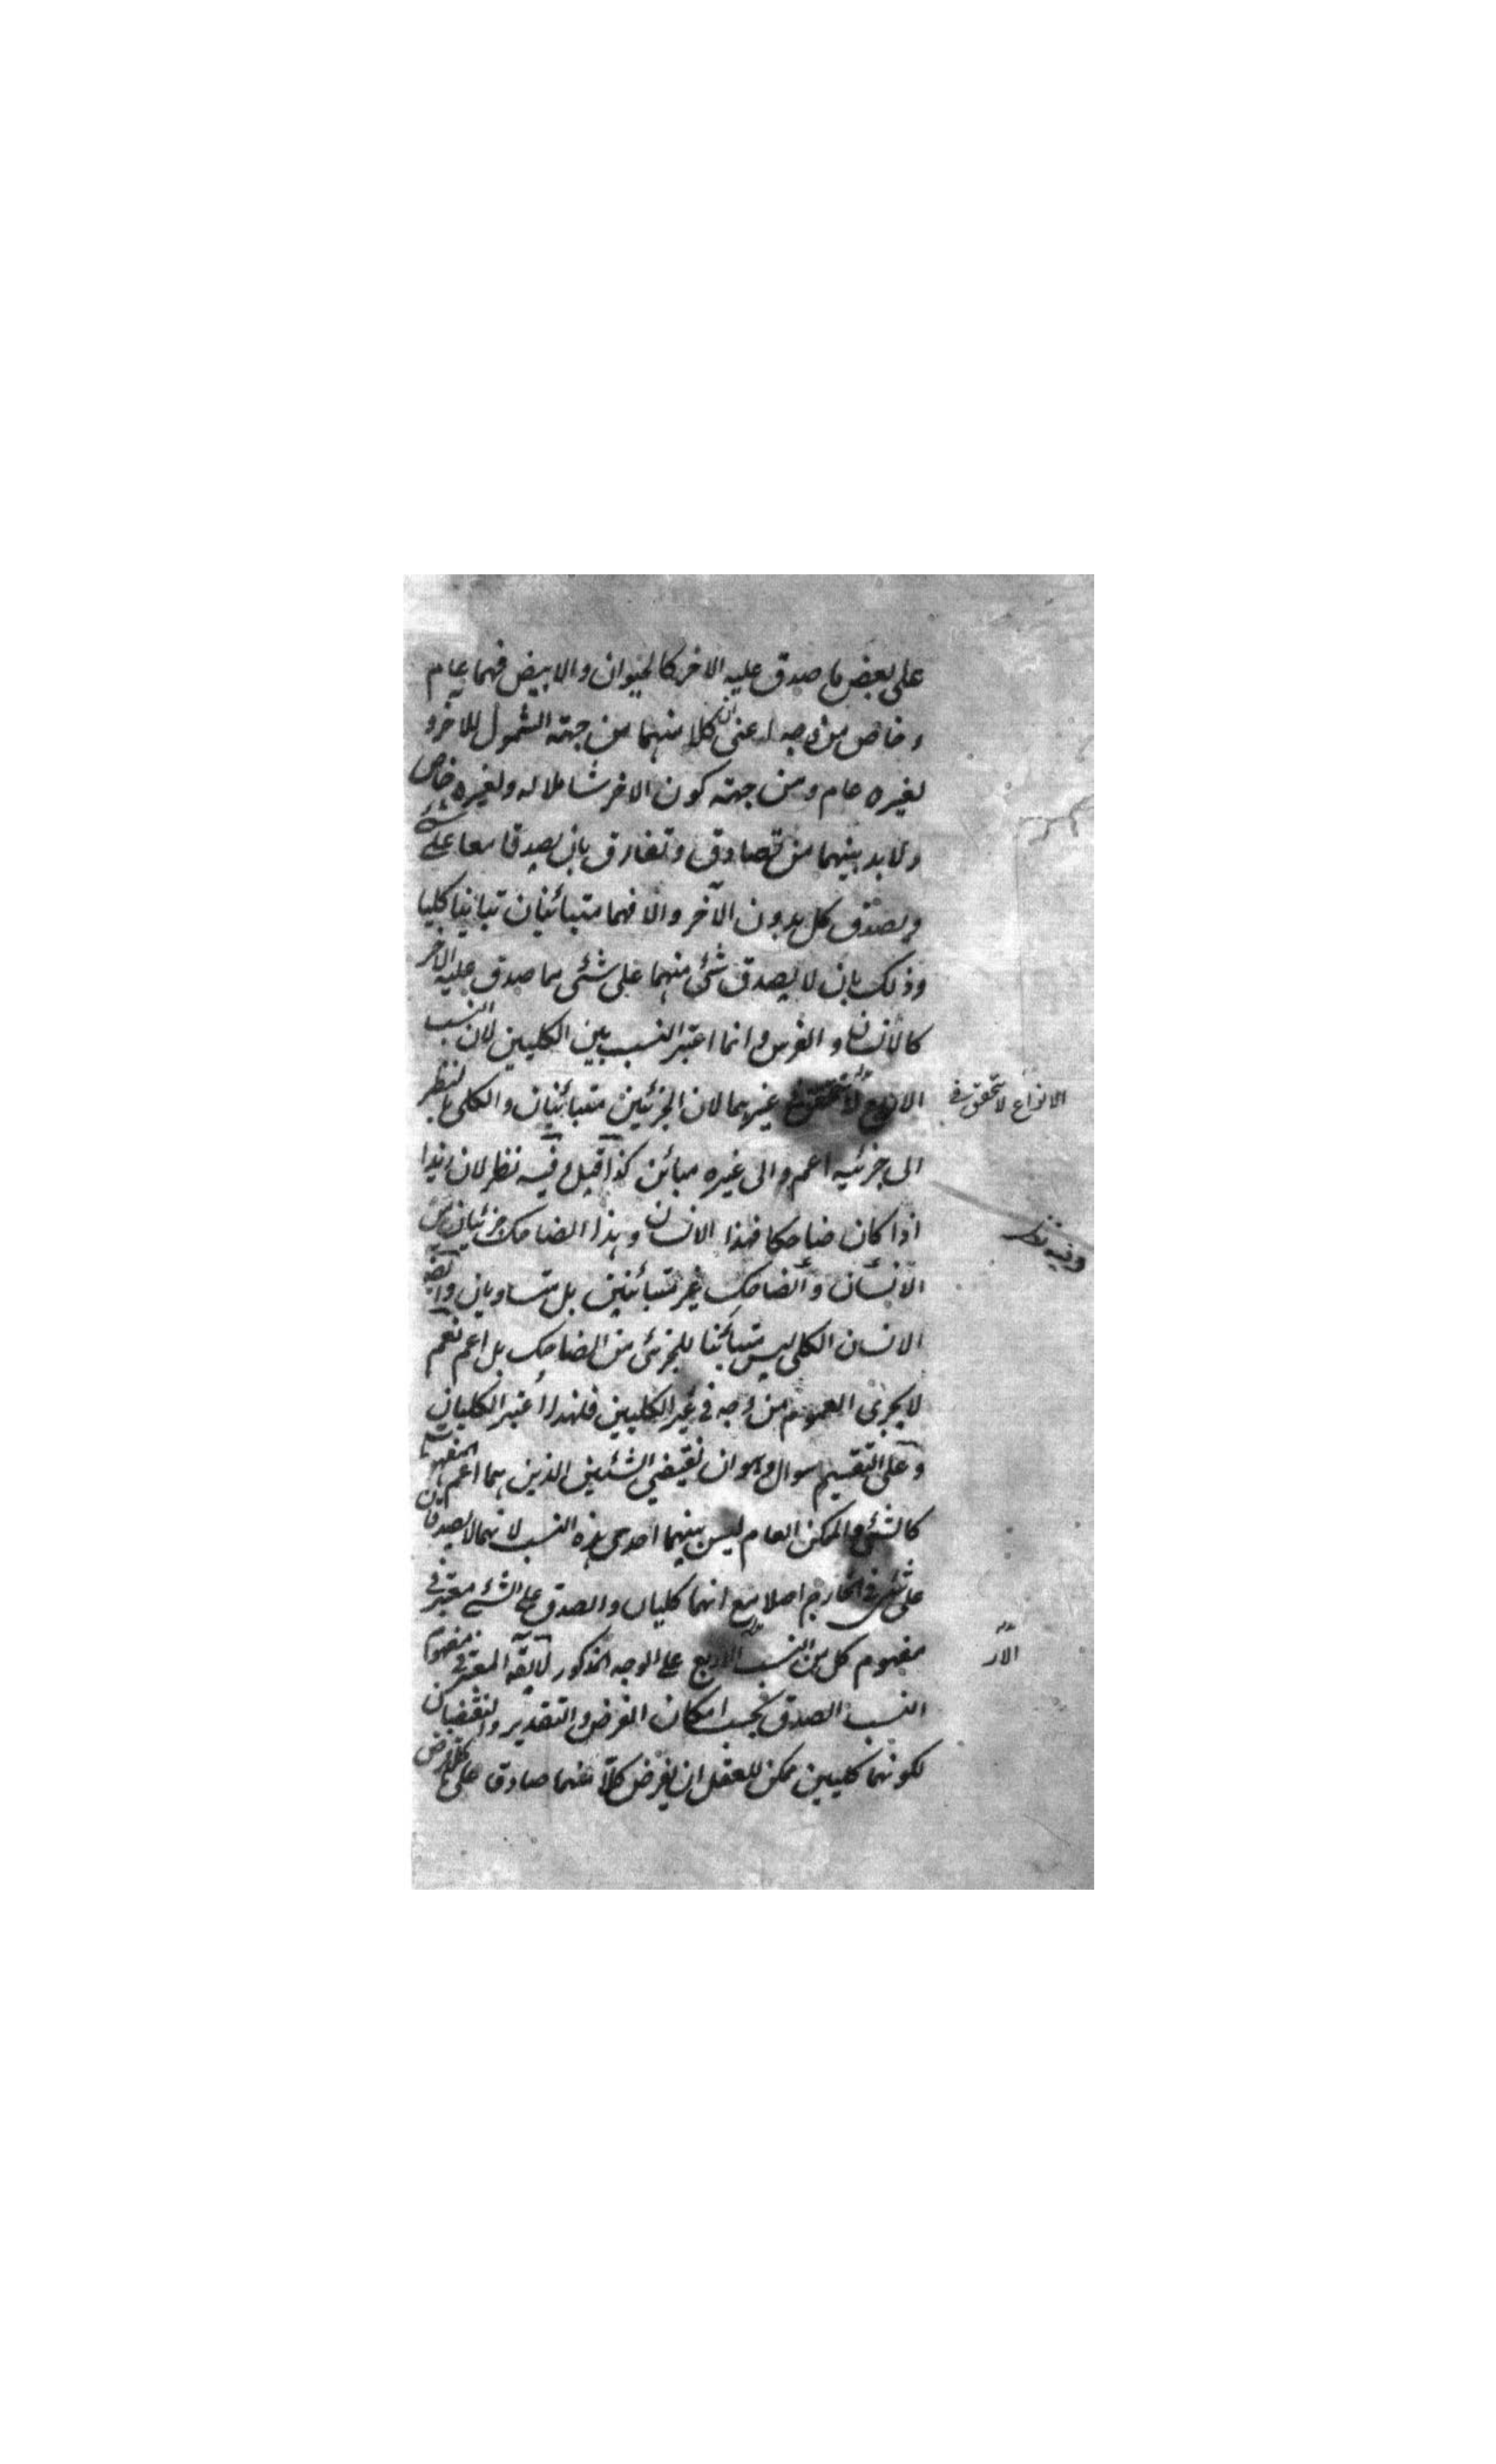 على بعض ما صدق عليه الاخر كالحيوان والابيض فهما عام
وخاص من وجه اعنى ان كلا منهما من جهة الشمول للاخر و
لغيره عام ومن جهة كون الاخر شاملا له ولغيره خاص
ولا بد بينهما من تصادق وتفارق بان يصدقا معا على شئ
ويصدق كل بدون الآخر والا فهما متبائنان تباينا كليا
وذلك بان لا يصدق شئ منهما على شئ مما صدق عليه الاخر
كالانسان والفرس وانما اعتبر النسب بين الكليين لان النسب
الاربع لا تتحقق فى غيرهما لان الجزئيين متبائنان والكلى بالنظر
الى جزئيه اعم والى غيره مبائن كذا قيل وفيه نظر لان زيدا
اذا كان ضاحكا فهذا الانسان وهذا الضاحك جزئيان من
الانسان والضاحك غير متبائنين بل متساويان وايضا
الانسان الكلى ليس متبائنا للجزئى من الضاحك بل اعم نعم
لا يجرى العموم من وجه فى غير الكليين فلهذا اعتبر الكليان
وعلى التقسيم سوال وهو ان نقيضي الشئين الذين هما اعم
كالشئ والممكن العام ليس بينهما احدى هذه النسب لانهما لا يصدقان
على شئ فى الخارج اصلا مع انهما كليان والصدق على الشئ معتبر فى
مفهوم كل من النسب الاربع على الوجه المذكور المعتبر فى مفهوم
النسب الصدق بحسب امكان الفرض والتقدير والنقيضان
لكونهما كليين ممكن للعقل ان يفرض كلا منهما صادقا على
الانواع لا تتحقق فى
وفيه نظر